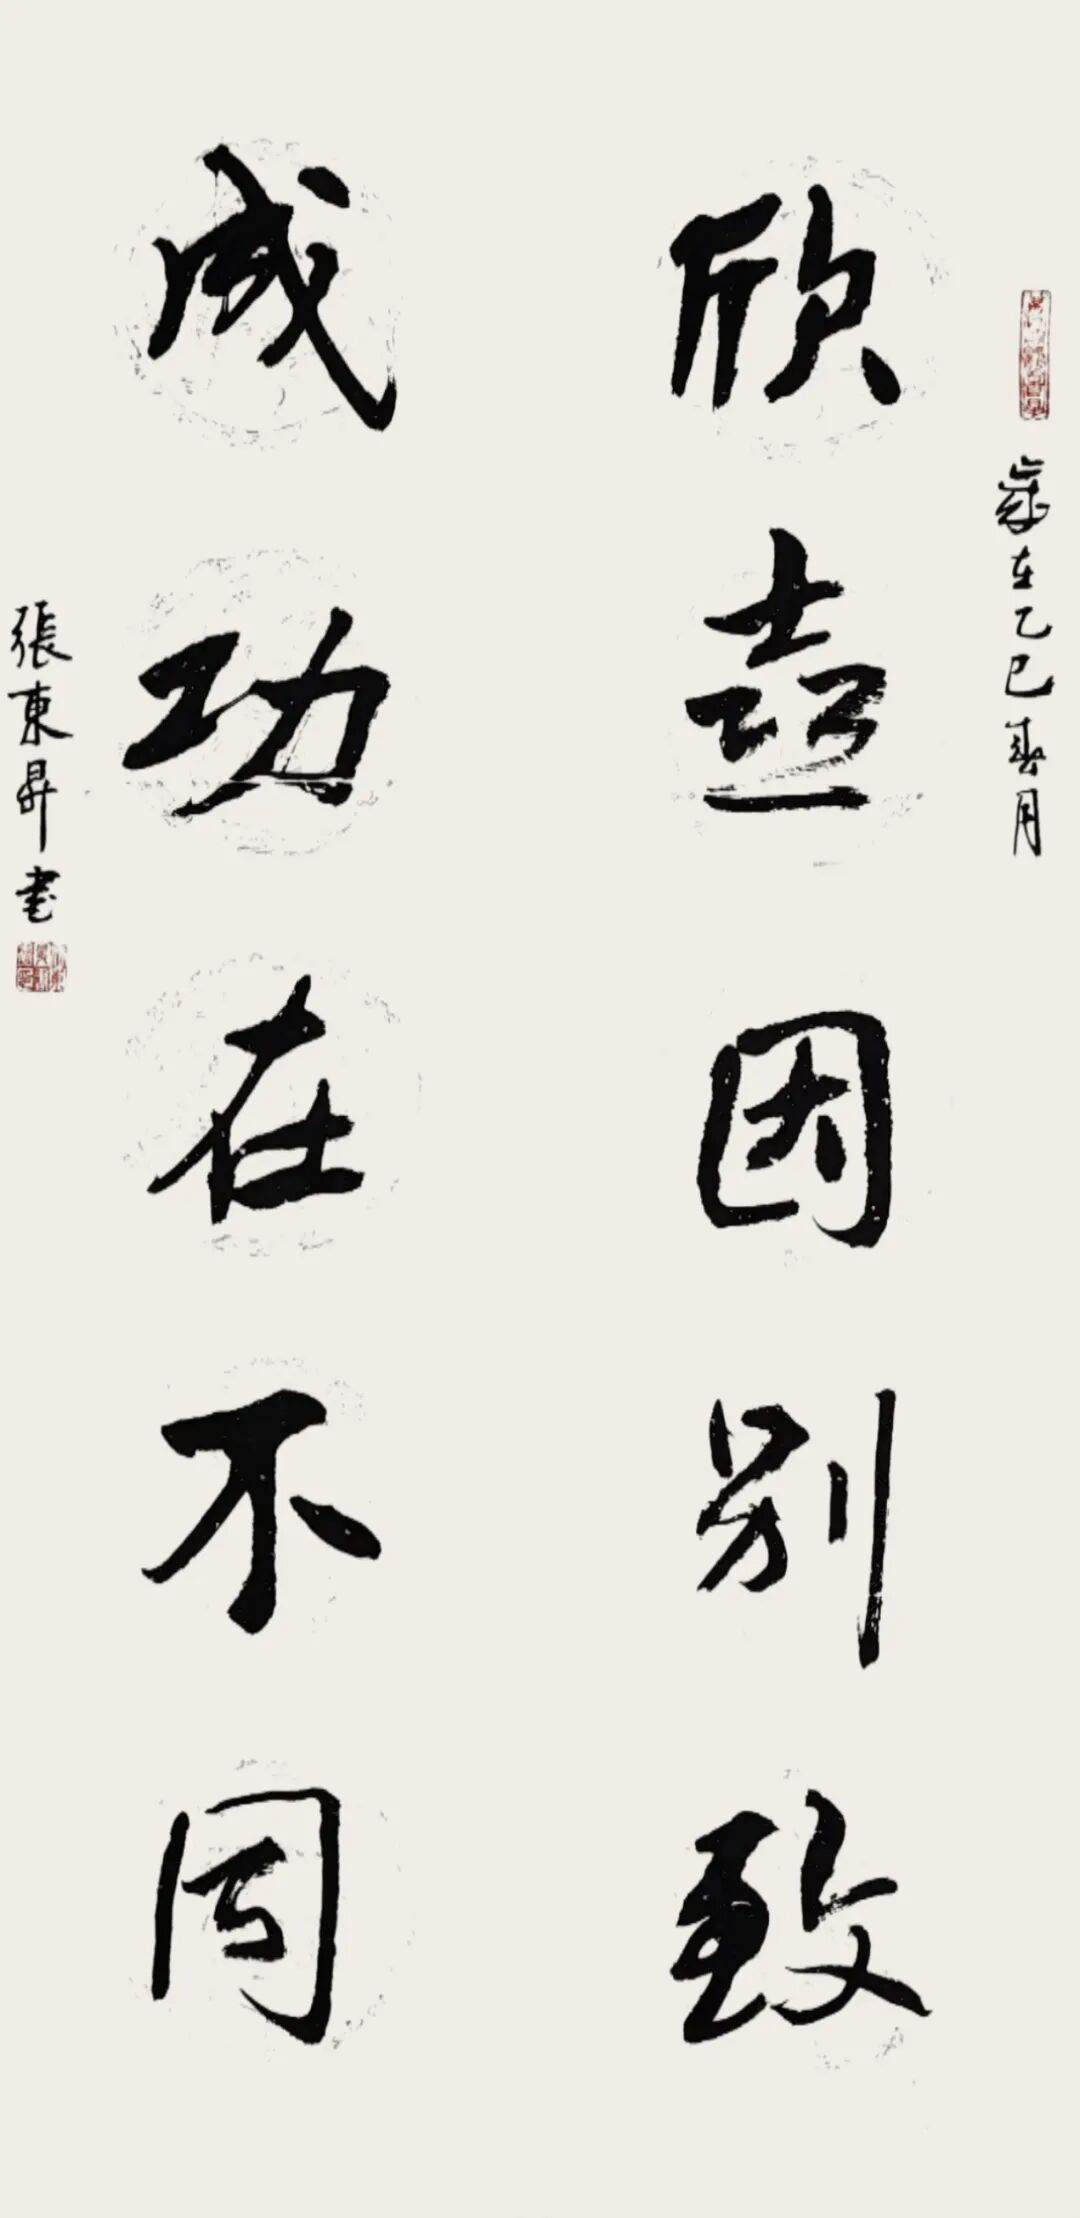 歲在乙巳春月
欣喜因别致
成功在不同
張東昇書